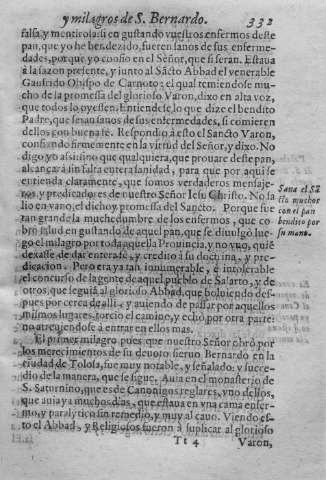 y milagros de S. Bernardo. 332
falsa, y mentirosa: si en gustando vuestros enfermos deste
pan, que yo he bendezido, fueren sanos de sus enferme-
dades, porque yo confio en el Señor, que si seran. Estaua
à la sazon presente, y junto al Sãcto Abbad el venerable
Gaufrido Obispo de Carnoto: el qual temiendose mu-
cho de la promessa del glorioso Varon, dixo en alta voz,
que todos lo oyessen. Entiendese, lo que dize el bendito
Padre, que seran sanos de sus enfermedades, si comieren
dellos con buena fè. Respondiò à esto el Sancto Varon,
confiando firmemente en la virtud del Señor, y dixo. No
digo yo assi, sino que qualquiera, que prouare deste pan,
alcançarà sin falta entera sanidad, para que por aqui se
entienda claramente, que somos verdaderos mensaje-
ros, y predicadores de nuestro Señor Iesu Christo. No sa
lio en vano, el dicho y promessa del Sancto. Porque fue
tan grande la muchedumbre de los enfermos, que co-
brò salud en gustando de aquel pan, que se diuulgò lue-
go el milagro por toda aquella Prouincia, y no vuo, quiẽ
dexasse de dar entera fè, y credito à su doctrina, y pre-
dicacion. Pero era ya tan innumerable, è intolerable
el concurso de la gente de aquel pueblo de Salarto, y de
otros, que seguia al glorioso Abbad, que boluiendo des-
pues por cerca de alli, y auiendo de passar por aquellos
mismos lugares, torcio el camino, y echò por otra parte:
no atreuiendose à entrar en ellos mas.
El primer milagro pues que nuestro Señor obrò por
los merecimientos de su deuoto sieruo Bernardo en la
ciudad de Tolosa, fue muy notable, y señalado: y suce-
dio de la manera, que se sigue. Auia en el monasterio de
S. Saturnino, que es de Canonigos reglares, vno dellos,
que auia ya muchos dias, que estaua en vna cama enfer-
mo, y paralytico sin remedio, y muy al cauo. Viendo es-
to el Abbad, y Religiosos fueron à suplicar al glorioso
Tt 4 Varon,
Sana el Sã
cto muchos
con el pan
bendito por
su mano.